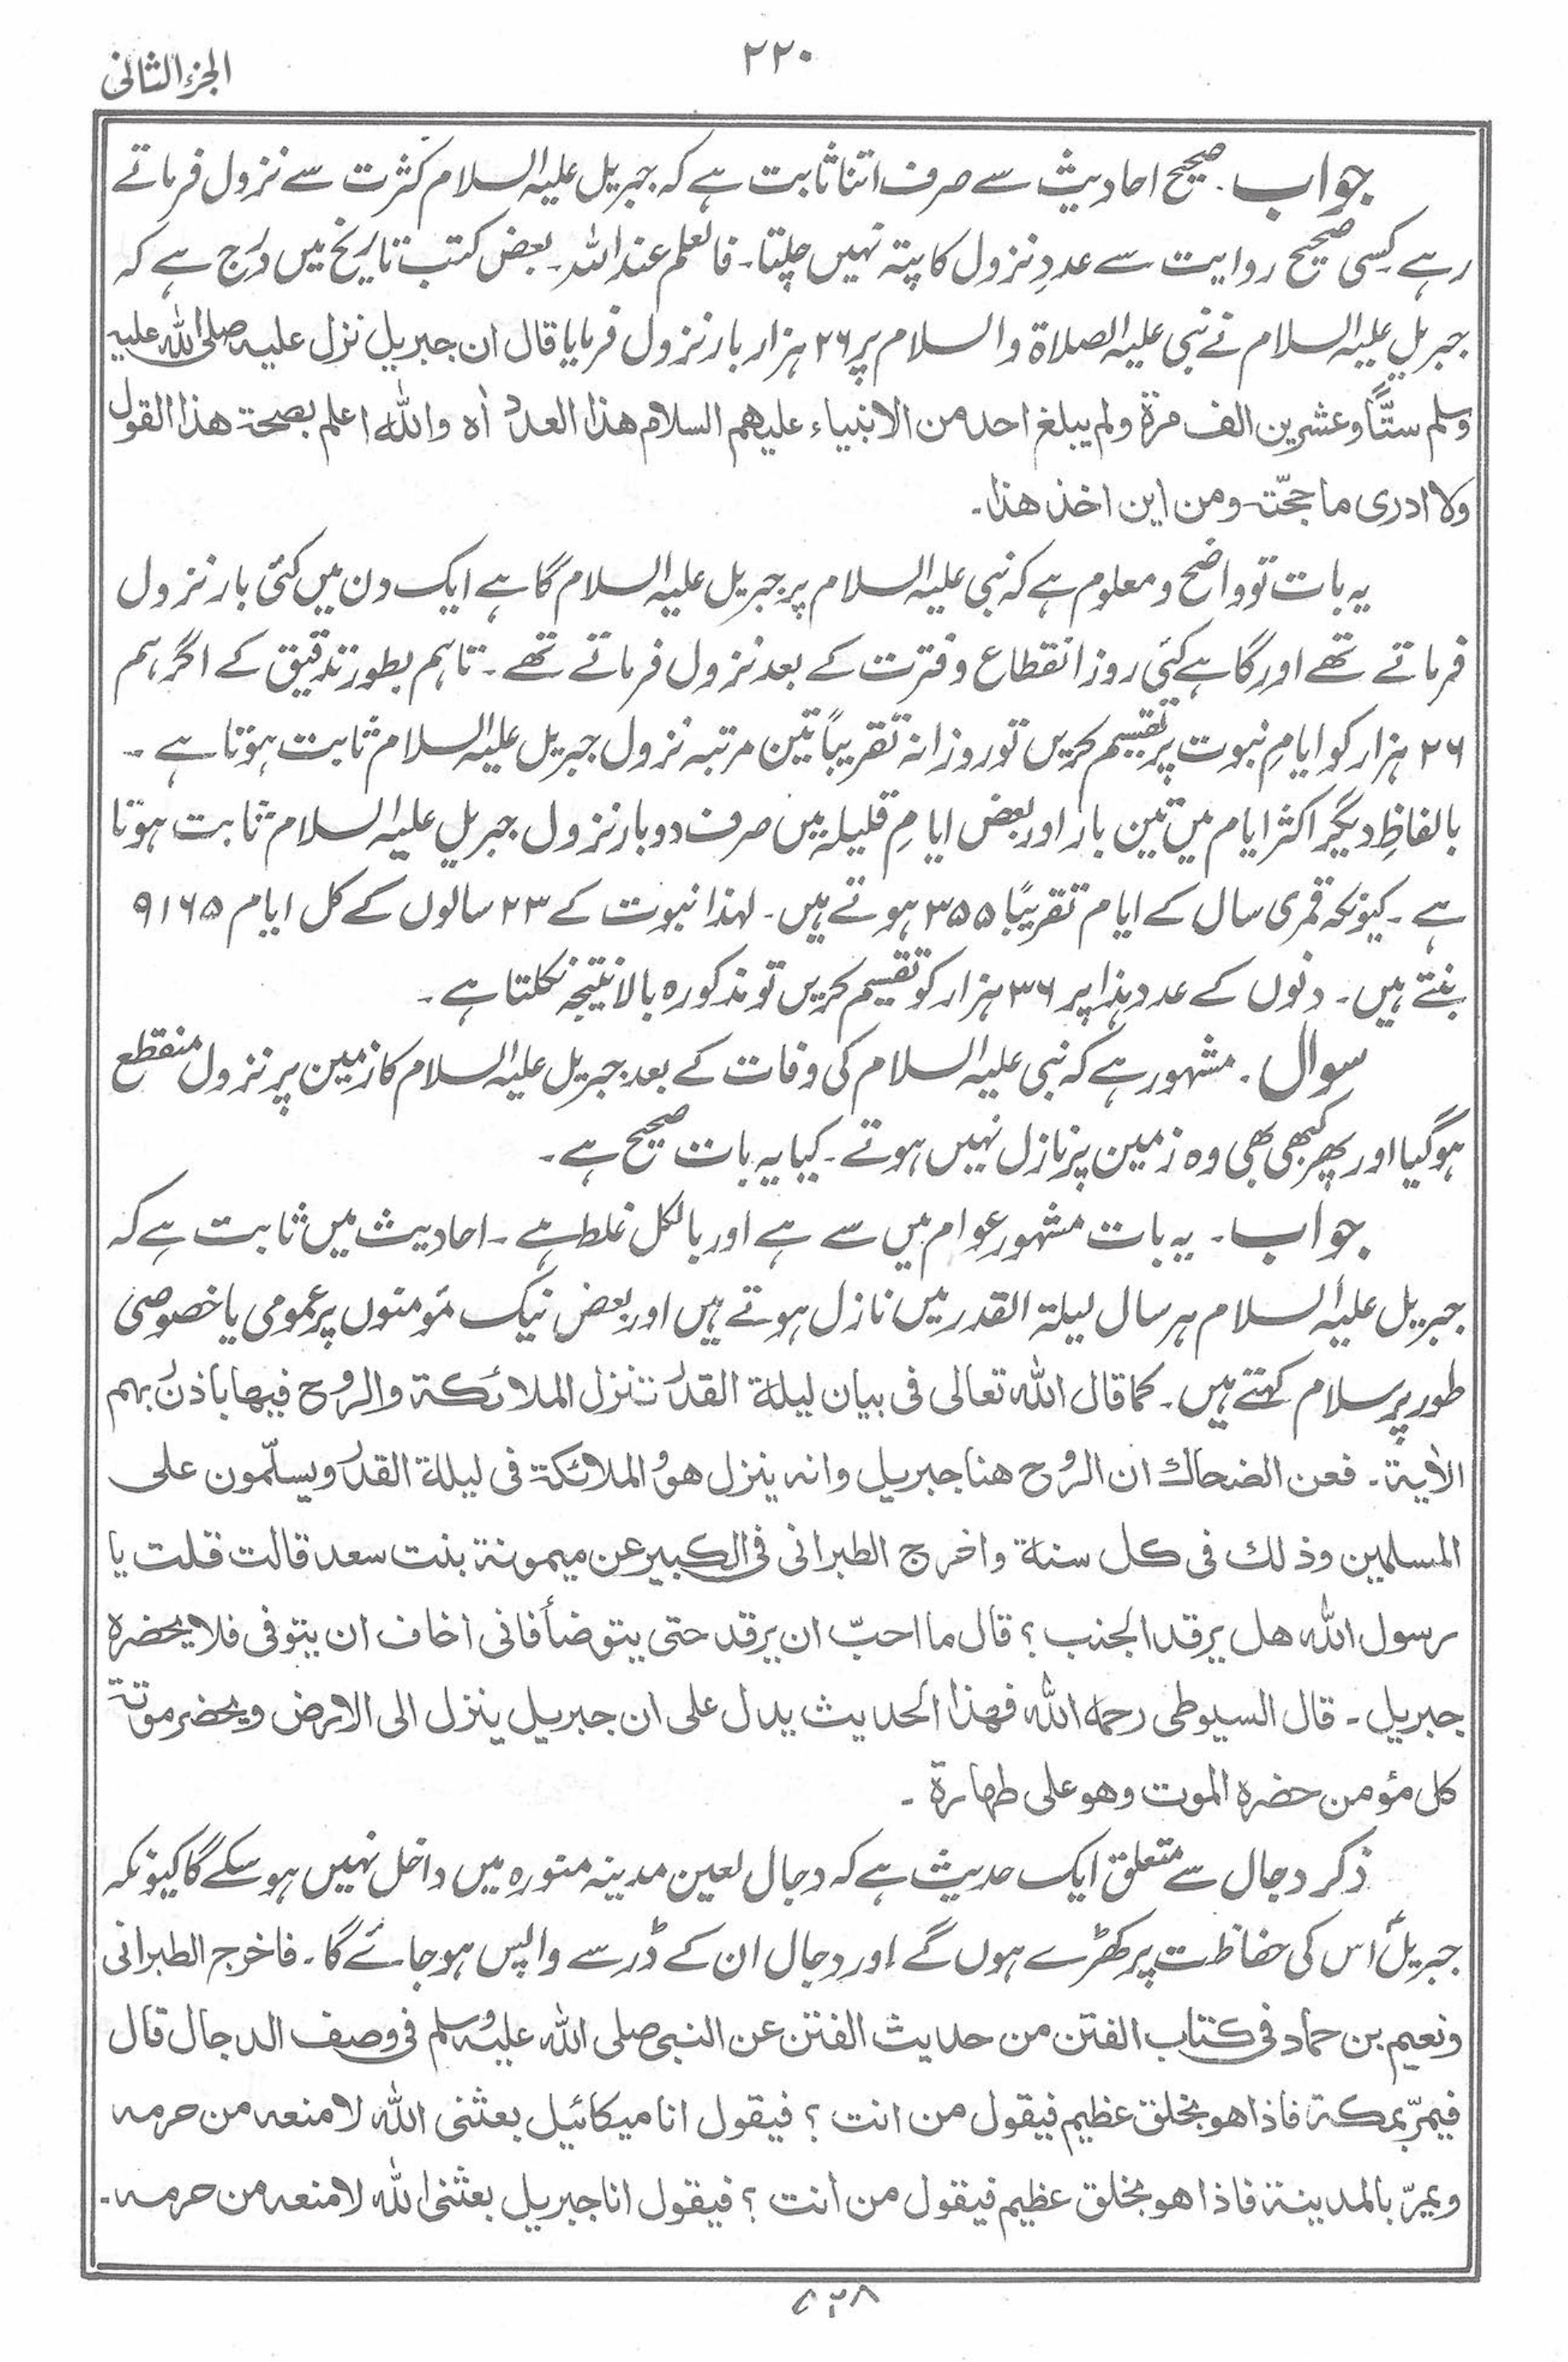 ۲۲۰
الجزء الثانی
جواب۔ صحیح احادیث سے صرف اتنا ثابت ہے کہ جبریل علیہ السلام کثرت سے نزول فرماتے
رہے کسی صحیح روایت سے عددِ نزول کا پتہ نہیں چلتا۔ فالعلم عند اللہ۔ بعض کتب تاریخ میں درج ہے کہ
جبریل علیہ السلام نے نبی علیہ الصلاۃ والسلام پر ۲۶ ہزار بار نزول فرمایا قال ان جبریل نزل علیہ صلی اللہ علیہ
وسلم ستًّا وعشرین الف مرۃ ولم یبلغ احد من الانبیاء علیہم السلام ھذا العدد اٰہ واللہ اعلم بصحۃ ھذا القول
ولا ادری ما حجّتہ ومن این اخذ ھذا۔
یہ بات تو واضح و معلوم ہے کہ نبی علیہ السلام پر جبریل علیہ السلام گاہے ایک دن میں کئی بار نزول
فرماتے تھے اور گاہے کئی روز انقطاع و فترت کے بعد نزول فرماتے تھے۔ تاہم بطور تدقیق کے اگر ہم
۲۶ ہزار کو ایامِ نبوت پر تقسیم کریں تو روزانہ تقریباً تین مرتبہ نزول جبریل علیہ السلام ثابت ہوتا ہے۔
بالفاظِ دیگر اکثر ایام میں تین بار اور بعض ایامِ قلیلہ میں صرف دو بار نزول جبریل علیہ السلام ثابت ہوتا
ہے۔ کیونکہ قمری سال کے ایام تقریباً ۳۵۵ ہوتے ہیں۔ لہذا نبوت کے ۲۳ سالوں کے کل ایام ۹۱۶۵
بنتے ہیں۔ دنوں کے عدد ہذا پر ۳۶ ہزار کو تقسیم کریں تو مذکورہ بالا نتیجہ نکلتا ہے۔
سوال۔ مشہور ہے کہ نبی علیہ السلام کی وفات کے بعد جبریل علیہ السلام کا زمین پر نزول منقطع
ہوگیا اور پھر کبھی بھی وہ زمین پر نازل نہیں ہوتے۔ کیا یہ بات صحیح ہے۔
جواب۔ یہ بات مشہور عوام میں سے ہے اور بالکل غلط ہے۔ احادیث میں ثابت ہے کہ
جبریل علیہ السلام ہر سال لیلۃ القدر میں نازل ہوتے ہیں اور بعض نیک مؤمنوں پر عمومی یا خصوصی
طور پر سلام کہتے ہیں۔ کما قال اللہ تعالی فی بیان لیلۃ القدر تنزل الملائکۃ والروح فیھا باذن ربہم
الاٰیۃ۔ فعن الضحاک ان الروح ھنا جبریل وانہ ینزل ھو والملائکۃ فی لیلۃ القدر ویسلّمون علی
المسلمین وذلک فی کل سنۃ واخرج الطبرانی فی الکبیر عن میمونۃ بنت سعد قالت قلت یا
رسول اللہ ھل یرقد الجنب؟ قال ما احبّ ان یرقد حتی یتوضأ فانی اخاف ان یتوفی فلا یحضرہ
جبریل۔ قال السیوطی رحمہ اللہ فھذا الحدیث یدل علی ان جبریل ینزل الی الارض ویحضر موتۃ
کل مؤمن حضرہ الموت وھو علی طھارۃ۔
ذکر دجال سے متعلق ایک حدیث ہے کہ دجال لعین مدینہ منورہ میں داخل نہیں ہوسکے گا کیونکہ
جبریلؑ اس کی حفاظت پر کھڑے ہوں گے اور دجال ان کے ڈر سے واپس ہوجائے گا۔ فاخرج الطبرانی
ونعیم بن حماد فی کتاب الفتن من حدیث الفتن عن النبی صلی اللہ علیہ وسلم فی وصف الدجال قال
فیمرّ بمکۃ فاذا ھو بخلق عظیم فیقول من انت؟ فیقول انا میکائیل بعثنی اللہ لامنعہ من حرمہ
ویمرّ بالمدینۃ فاذا ھو بخلق عظیم فیقول من انت؟ فیقول انا جبریل بعثنی اللہ لامنعہ من حرمہ۔